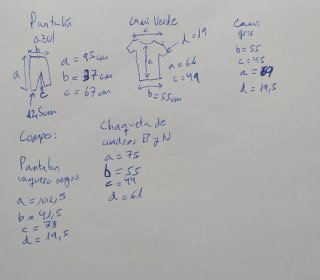 Pantalón
azul
b
a
c
12,5cm
a = 95cm
b = 37cm
c = 67cm
Cami Verde
c
d = 19
a
a = 66
c = 49
b = 55cm
Cami
gris
b = 55
c = 45
a = 69
d = 19,5
Compo:
Pantalón
vaquero negro
a = 102,5
b = 41,5
c = 78
d = 19,5
Chaqueta de
cuadros B y N
a = 75
b = 55
c = 44
d = 61